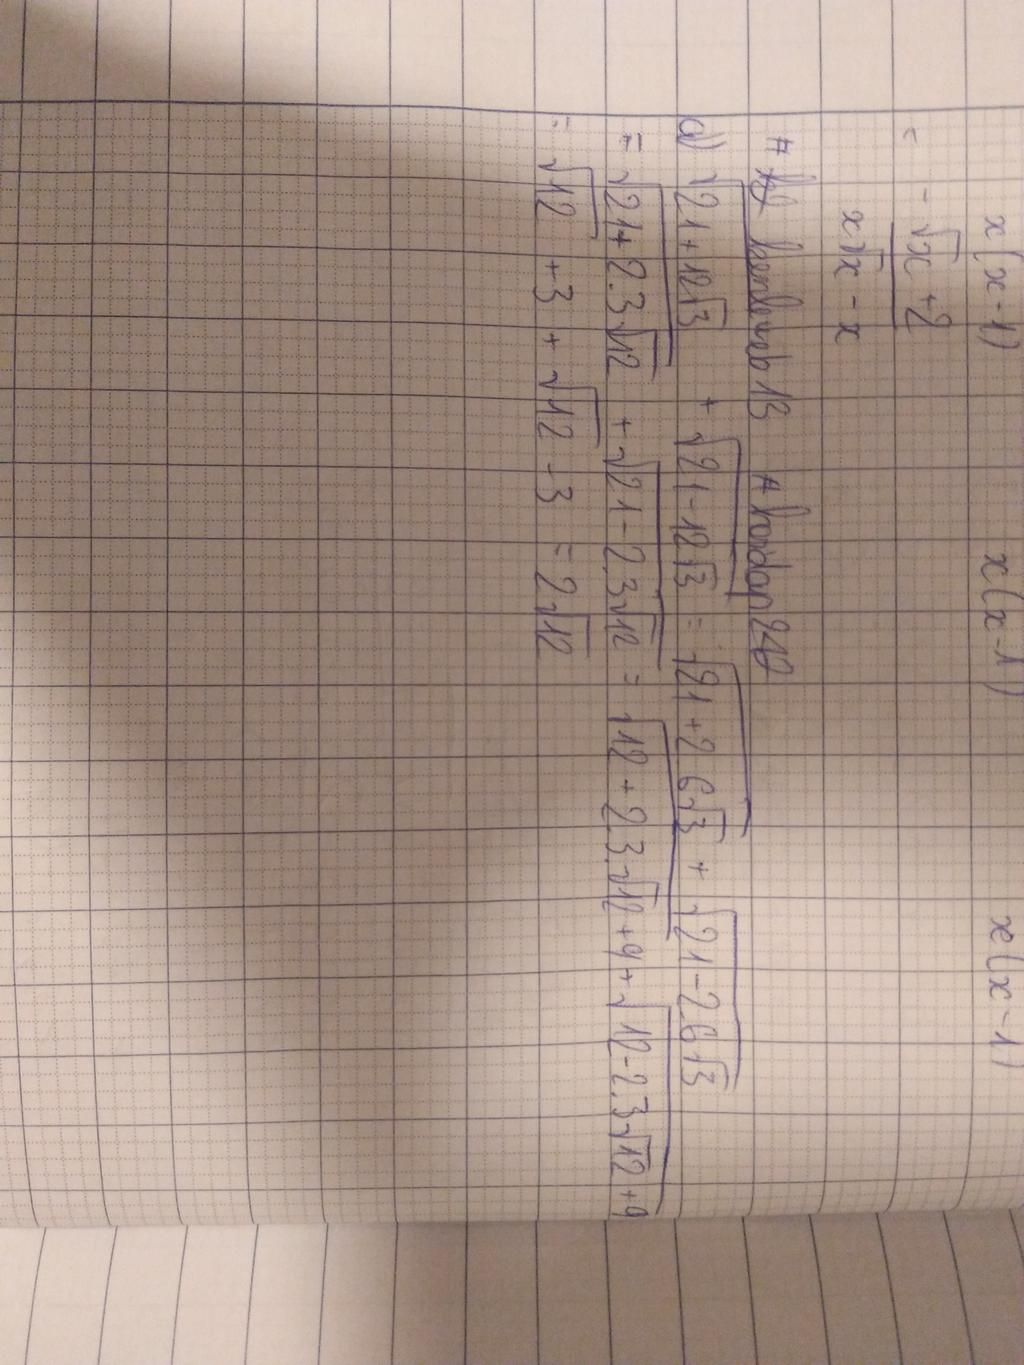 x(x-1) x(x-1) x(x-1)
= -√x +2
x√x - x
# 13 #
a) √(21+12√3) + √(21-12√3) = √(21+2.6√3) + √(21-2.6√3)
= √(21+2.3√12) + √(21-2.3√12) = √(12+2.3.√12+9) + √(12-2.3√12+9)
= √12 +3 + √12 -3 = 2√12